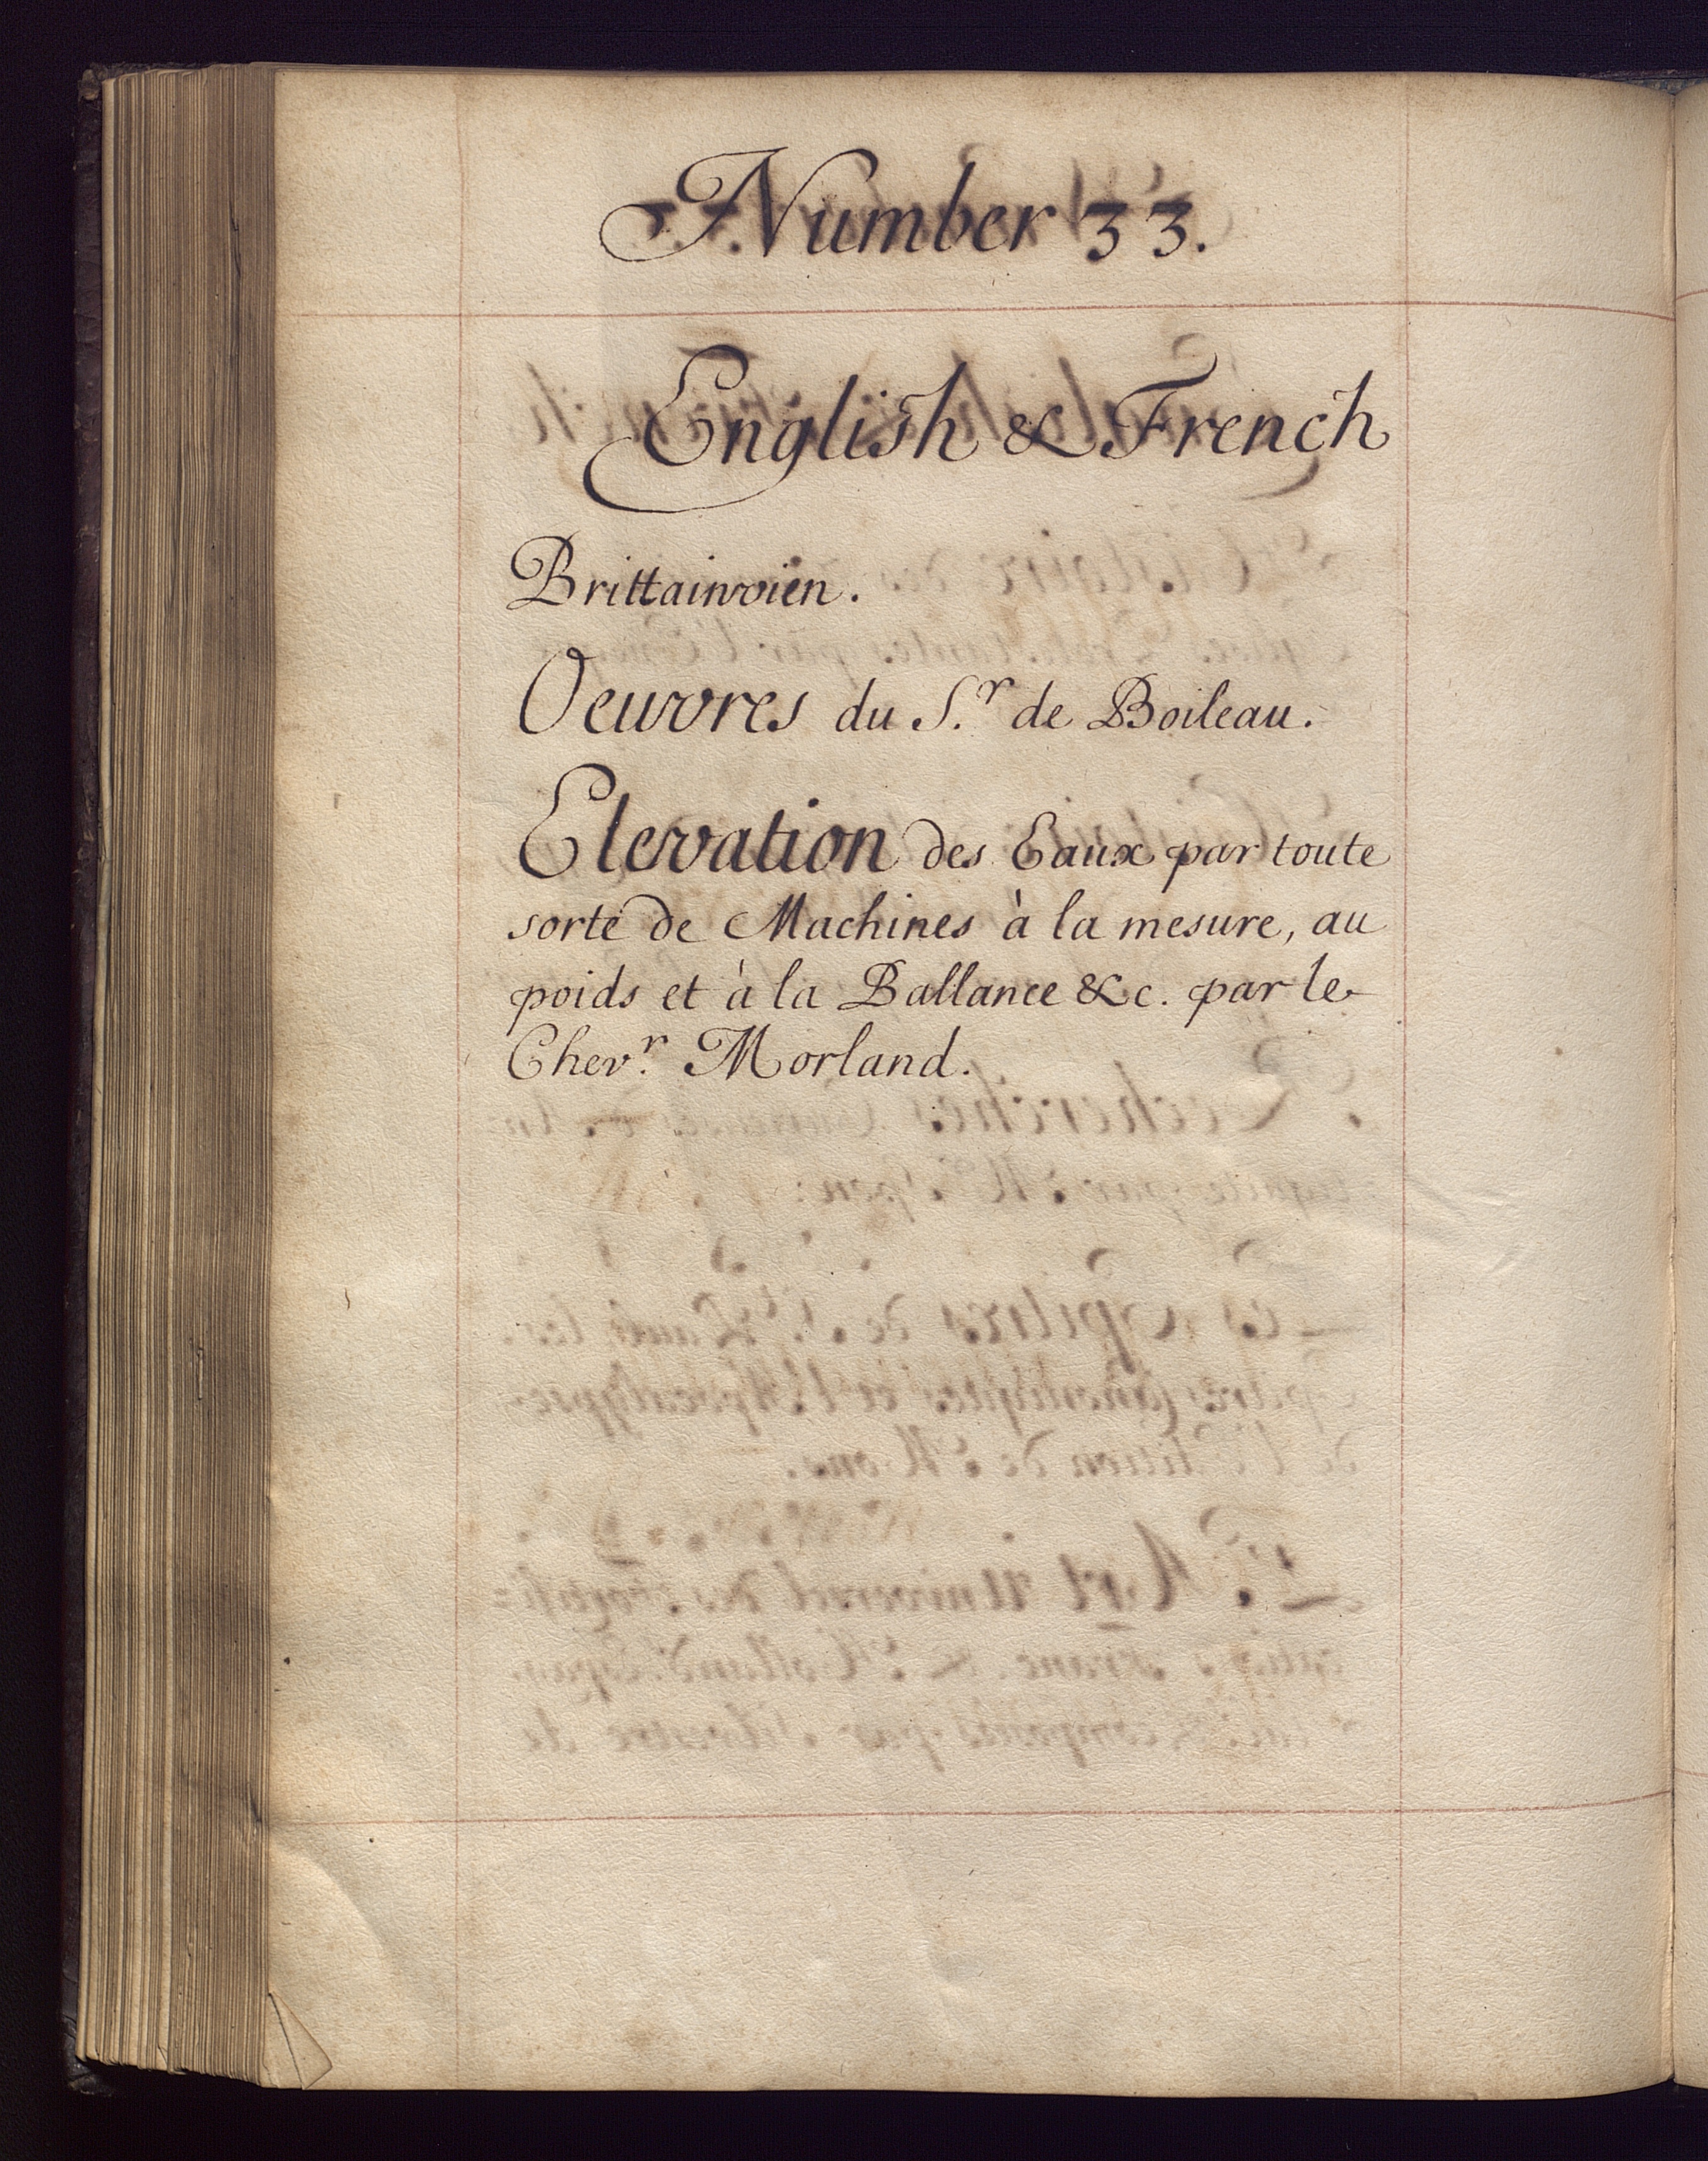 Number 33.
English & French
Brittainvien.
Oeuvres du S.r de Boileau.
Elevation des Eaux par toute
sorte de Machines à la mesure, au
poids et à la Ballance &c. par le
Chev.r Morland.